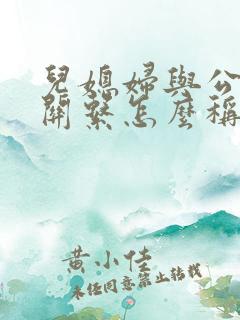 兒媳婦與公
關繫怎麼稱
黃小佳
未經同意禁止轉載